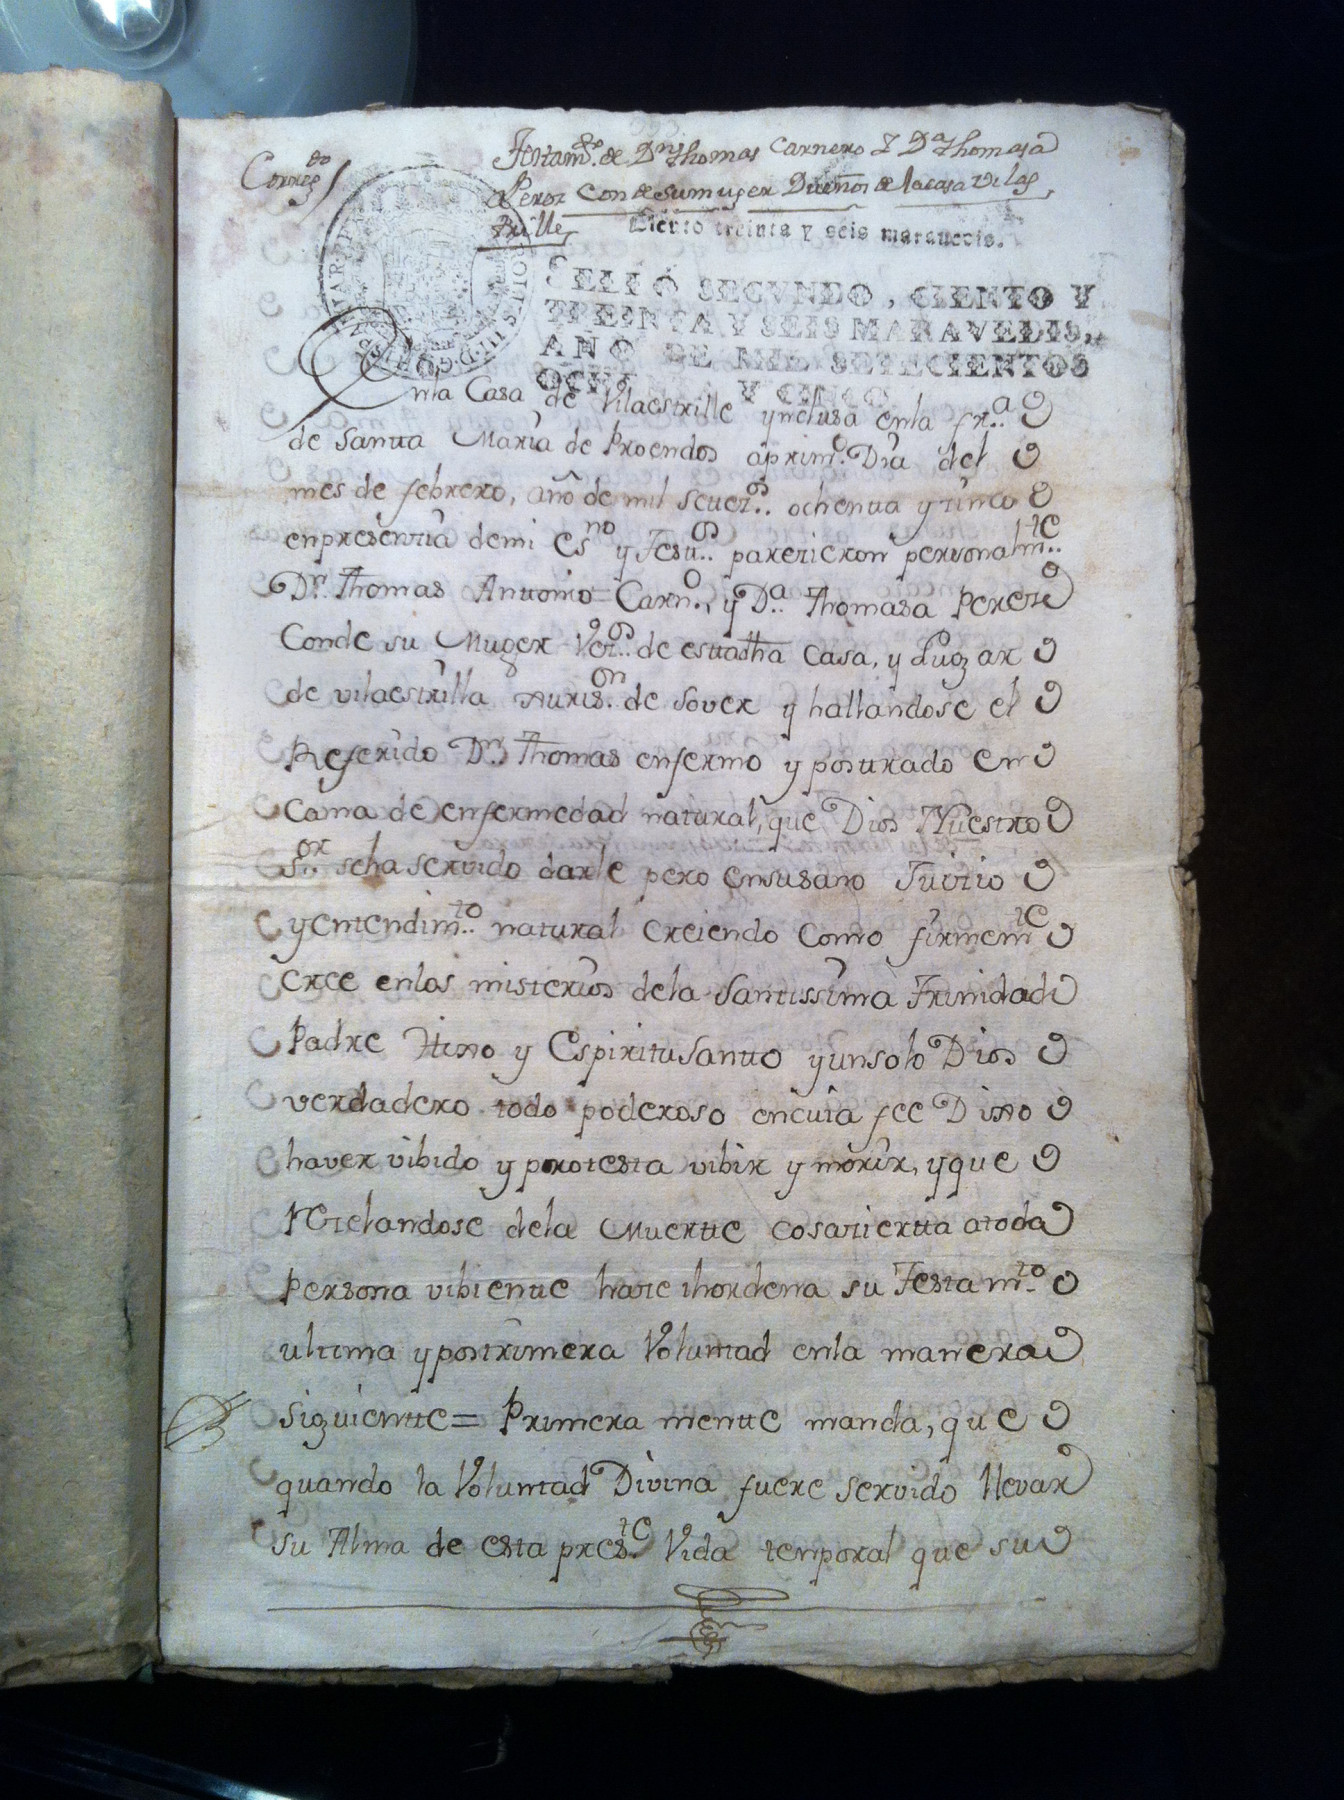 Correxdo
Testamto. de Dn. Thomas Carnero Y Da. Thomasa
Perez Conde su muger Dueños de la casa Vilaes
trille
Ciento treinta y seis maravedis.
SELLO SEGVNDO, CIENTO Y
TREINTA Y SEIS MARAVEDIS,
AÑO DE MIL SETECIENTOS
OCHENTA Y CINCO.
Enla Casa de Vilaestrille ynclusa enla fra..
de Santta Maria de Proendos a primo. Dia del
mes de febrero, año de mil setezs.. ochenta y zinco
enpresenzia demi esno y Testigs.. parezieron personalmte..
Dn. Thomas Anttonio Carno., y Da.. Thomasa Perez
Conde su Muger Vezs.. de esttadha Casa, y Lugar
de vilaestrilla Jurison. de Sover y hallandose el
Referido Dn. Thomas enfermo y postrado en
Cama de enfermedad natural, que Dios Nuestro
Sor.. seha servido darle pero ensusano Juizio
y entendimto.. natural Creiendo Como firmemte
cree enlos misterios dela Santissima Trinidad
Padre Hixo y Espiritu Santto yunsolo Dios
verdadero todo poderoso encuia fee Dixo
haver vibido y protesta vibir y morir, yque
Rezelandose dela Muertte cosaziertta atoda
Persona vibientte haze ihordena su Testamto.
ultima ypostrimera Voluntad enla manera
siguientte = Primera mentte manda, que
quando la Voluntad Divina fuere servido llevar
su Alma de esta preste. Vida temporal que su